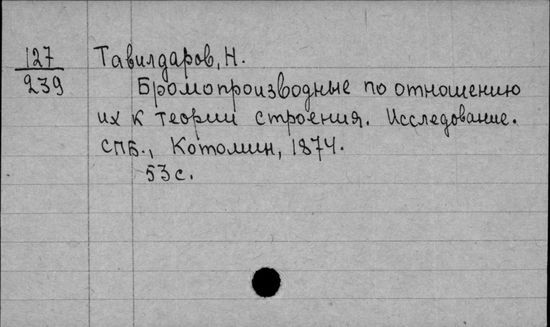 127
239
Тавилдаров, Н.
Бромопроизводные по отношению
их к теории строения. Исследование.
СПБ., Котомин, 1874.
53 с.